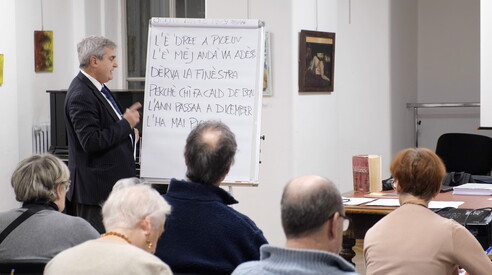 L'È DREE A PIOEUV
L'È MÈJ ANDÀ VIA ADÈSS
DERVA LA FINÈSTRA
PERCHÈ CHÌ FA CALD DE BON
L'ANN PASSAA A DICEMBER
L'HA MAI